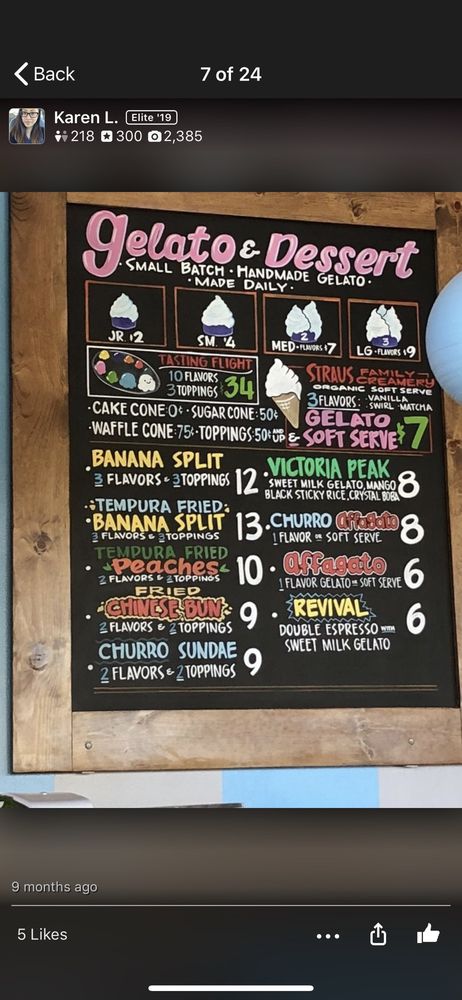 Back
7 of 24
Karen L. Elite '19
218 300 2,385
Gelato & Dessert
· SMALL BATCH · HANDMADE GELATO ·
· MADE DAILY ·
JR. $2
SM. $4
2
MED · FLAVORS · $7
3
LG · FLAVORS · $9
TASTING FLIGHT
10 FLAVORS
3 TOPPINGS $34
STRAUS FAMILY CREAMERY
ORGANIC SOFT SERVE
3 FLAVORS: VANILLA SWIRL · MATCHA
GELATO & SOFT SERVE $7
· CAKE CONE: 0¢ · SUGAR CONE: 50¢
· WAFFLE CONE: 75¢ · TOPPINGS: 50¢ UP
· BANANA SPLIT 12
3 FLAVORS & 3 TOPPINGS
· TEMPURA FRIED ·
BANANA SPLIT 13
3 FLAVORS & 3 TOPPINGS
TEMPURA FRIED
· Peaches · 10
2 FLAVORS & 2 TOPPINGS
FRIED
· CHINESE BUN · 9
2 FLAVORS & 2 TOPPINGS
· CHURRO SUNDAE 9
2 FLAVORS & 2 TOPPINGS
· VICTORIA PEAK 8
SWEET MILK GELATO, MANGO
BLACK STICKY RICE, CRYSTAL BOBA
· CHURRO Affagato 8
1 FLAVOR OR SOFT SERVE
· Affagato 6
1 FLAVOR GELATO OR SOFT SERVE
· REVIVAL 6
DOUBLE ESPRESSO WITH
SWEET MILK GELATO
9 months ago
5 Likes